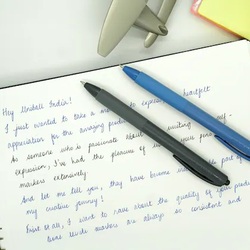 Hey Undale India!
I just wanted to take a to express heartfelt
appreciation for the amazing produ
As someone who is passionate about writing self-
expression, I've had the pleasure of
markers extensively
And let me tell you, they have become part of
my creative journey!
First of all, I want to rave about the quality of your produ
markers are always so consistent and